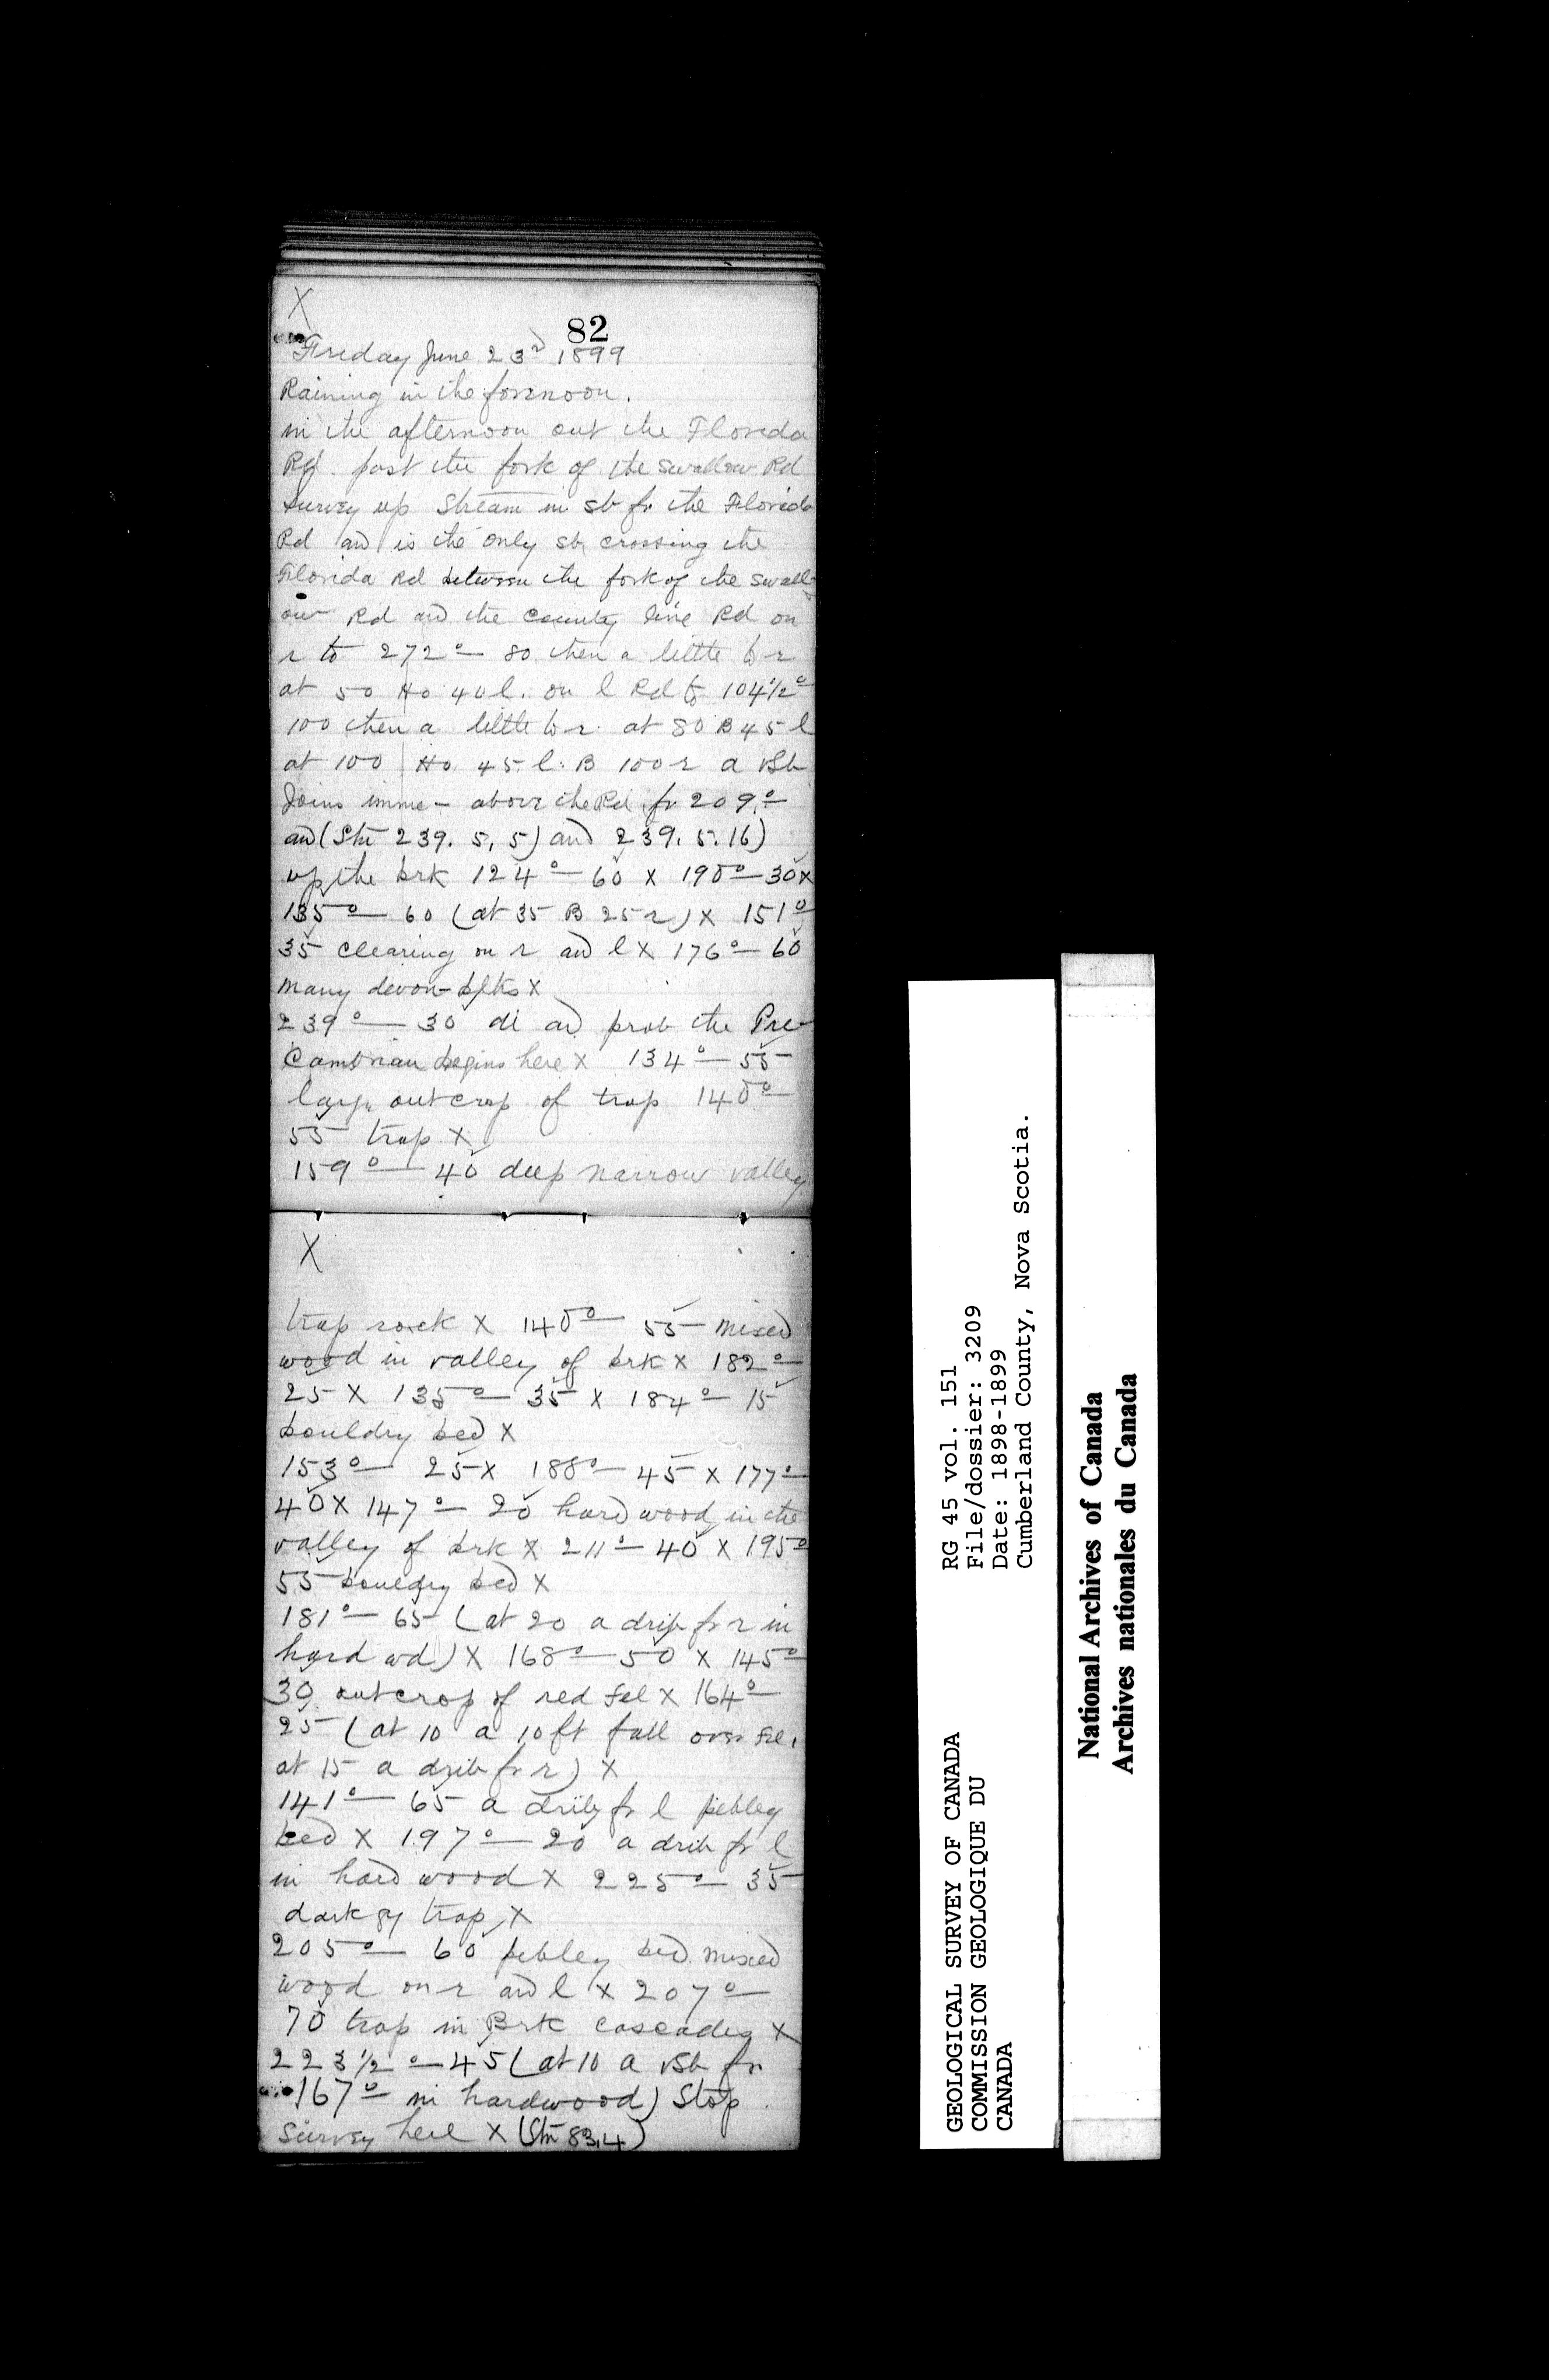 X
82
Friday June 23rd 1899
Raining in the forenoon.
in the afternoon out the Florida
Rd. past the fork of the swallow Rd
survey up stream in sb fr the Florida
Rd and is the only sb crossing the
Florida Rd between the fork of the swall-
ow Rd and the county line Rd on
r to 272° — 80 then a little b r
at 50 Ho 40 l. on l Rd to 104½°
100 then a little b r. at 80 B 45 l
at 100 Ho. 45. l. B 100 r a vSb
Joins imme- above the Rd fr 209°
and (Stn 239. 5, 5) and 239. 5. 16)
up the brk 124° — 60 X 190° — 30 X
135° — 60 (at 35 B 25 r) X 151°
35 clearing on r and l X 176° — 60
many devon- X
239° — 30 di and prob the Pre-
Cambrian begins here X 134° — 55
large outcrop of trap 140°
55 trap X
159° — 40 deep narrow valley
X
trap rock X 140° — 55 mixed
wood in valley of brk X 182°
25 X 135° — 35 X 184° — 15
bouldry bed X
153° — 25 X 188° — 45 X 177°
40 X 147° — 20 hard wood in the
valley of brk X 211° — 40 X 195°
55 bouldry bed X
181° — 65 (at 20 a drib fr r in
hard wd) X 168° — 50 X 145°
30 outcrop of red fel X 164°
25 (at 10 a 10 ft fall over fel.
at 15 a drib fr r) X
141° — 65 a drib fr l pebbley
bed X 197° — 20 a drib fr l
in hard wood X 225° — 35
dark gy trap X
205° — 60 pebbley bed mixed
wood on r and l X 207°
70 trap in Brk cascades X
223½° — 45 (at 10 a vSb fr
167° in hardwood) Stop
survey here X (Stn 83,4)
GEOLOGICAL SURVEY OF CANADA
COMMISSION GEOLOGIQUE DU
CANADA
RG 45 vol. 151
File/dossier: 3209
Date: 1898-1899
Cumberland County, Nova Scotia.
National Archives of Canada
Archives nationales du Canada